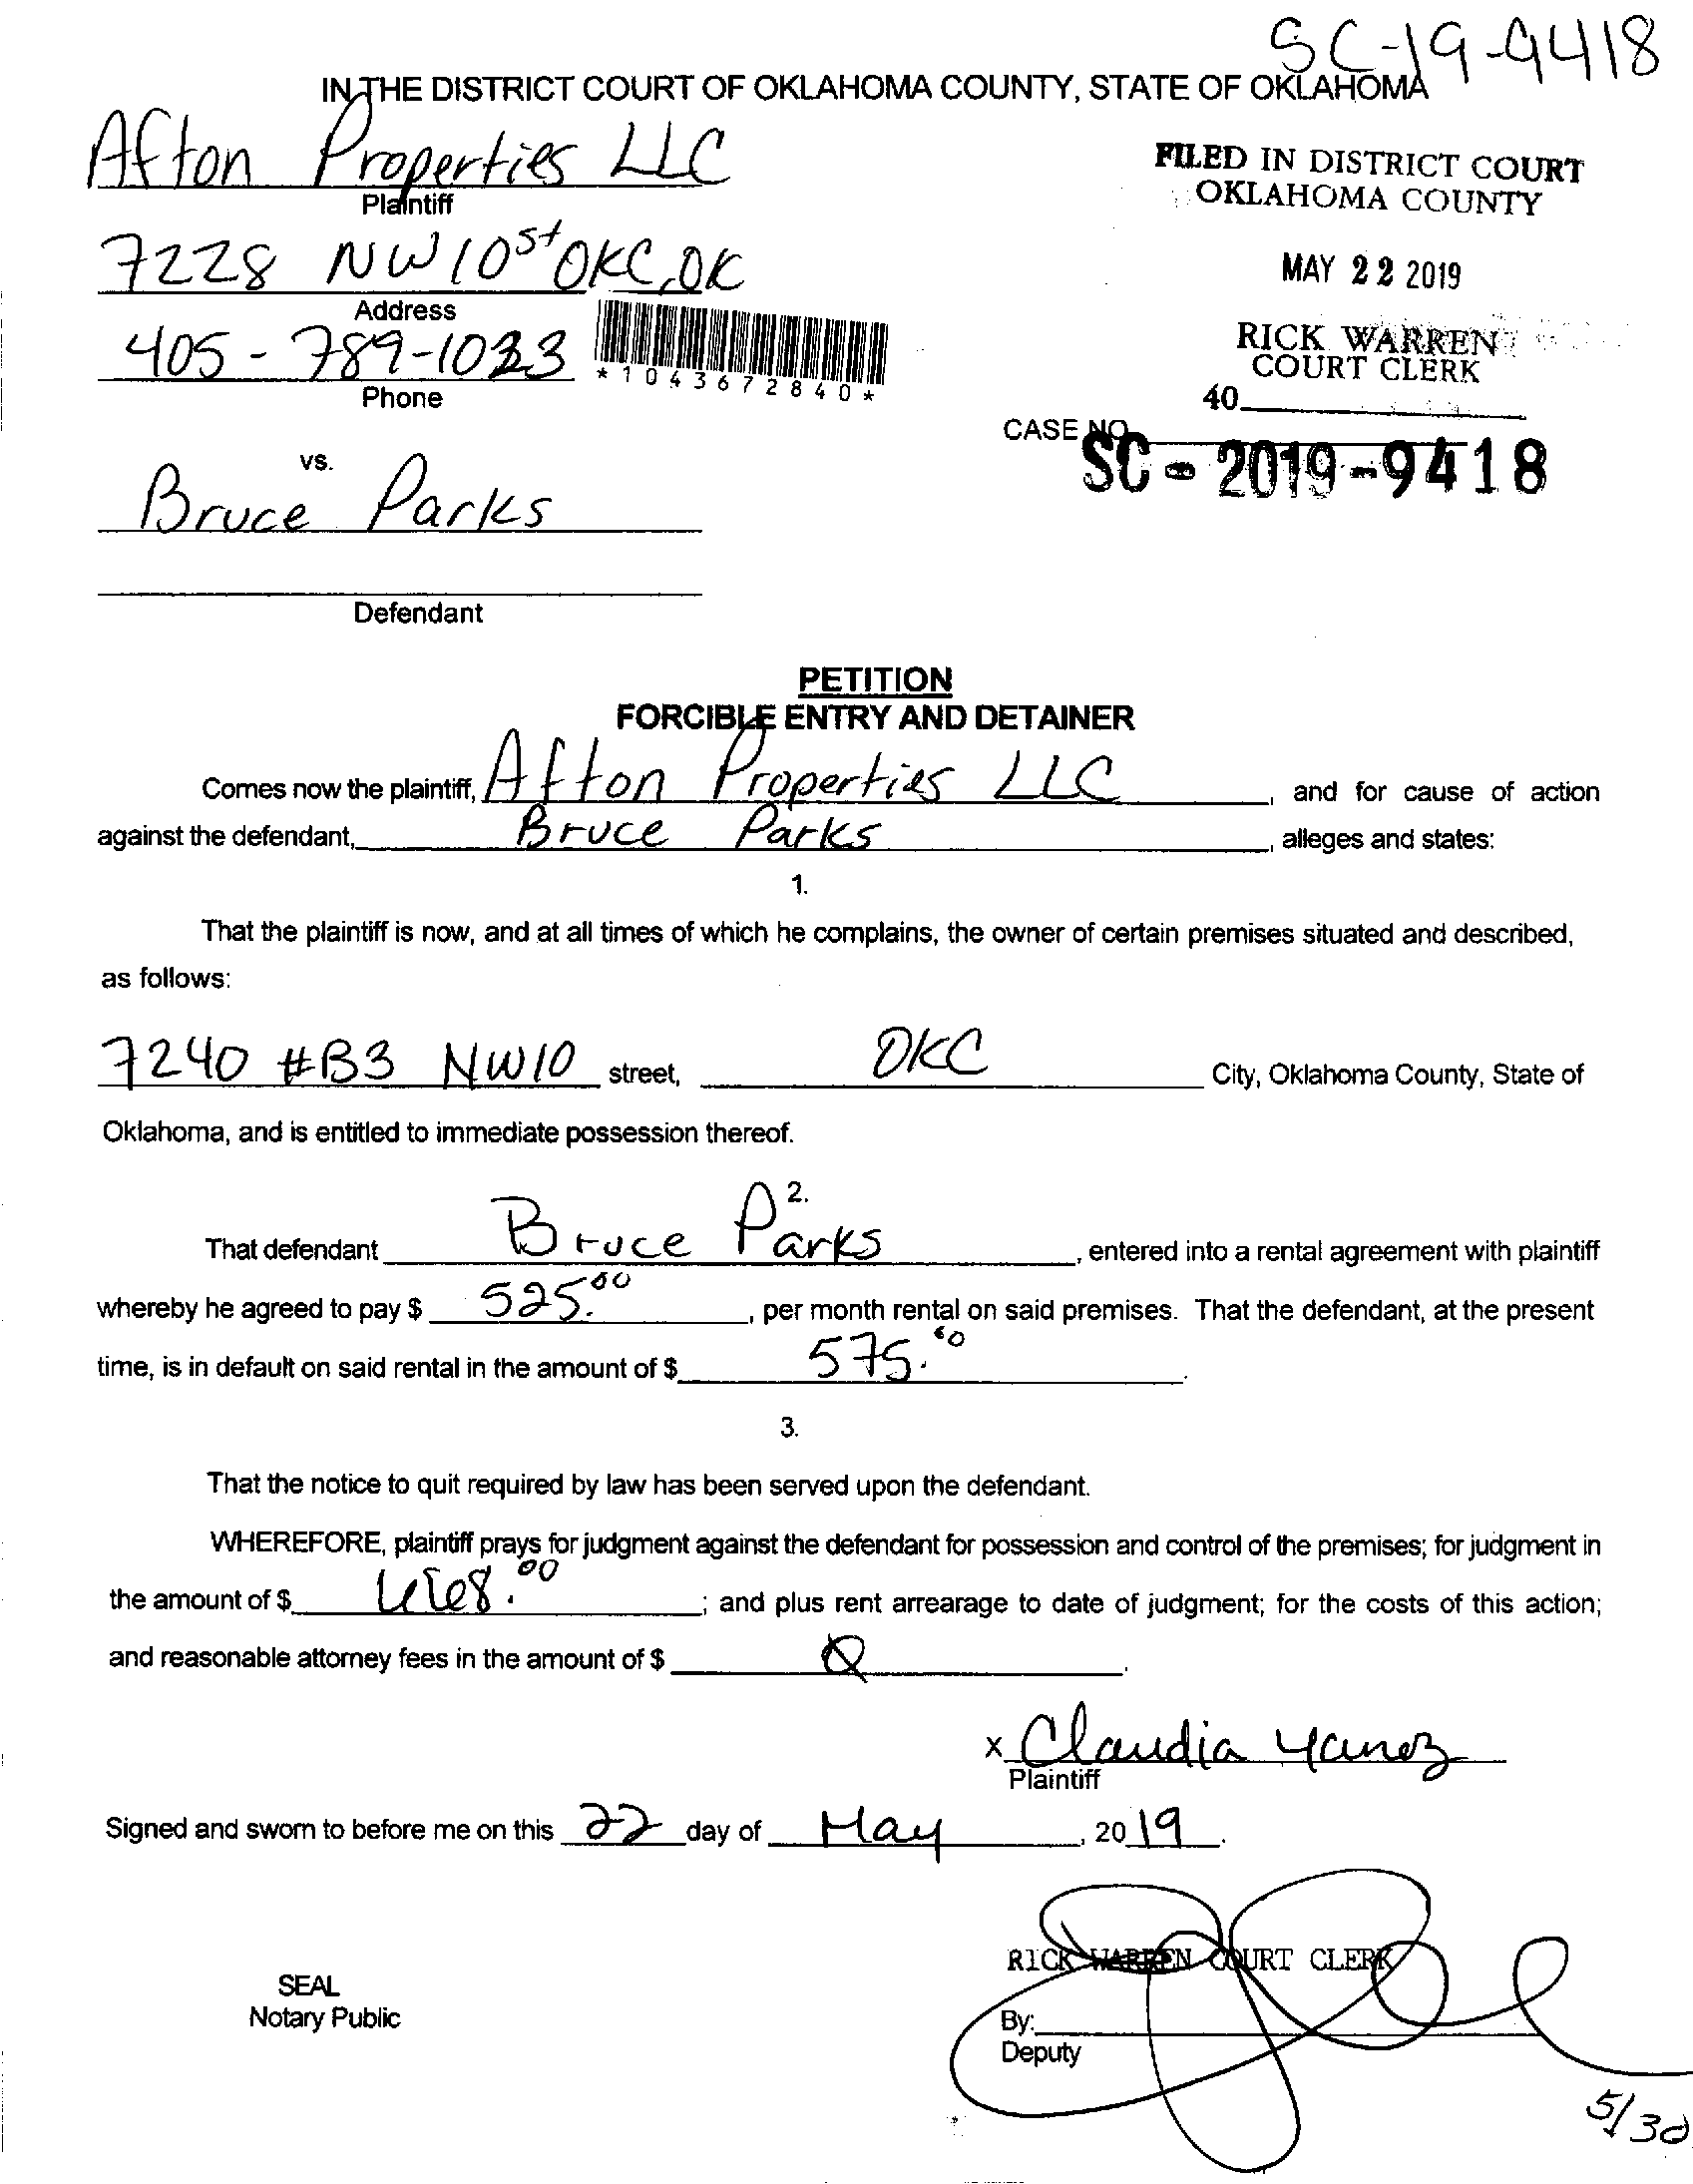 SC-19-9418
IN THE DISTRICT COURT OF OKLAHOMA COUNTY, STATE OF OKLAHOMA
Afton Properties LLC
Plaintiff
FILED IN DISTRICT COURT
OKLAHOMA COUNTY
7228 NW 10st OKC, OK
Address
MAY 22 2019
405-789-1033
Phone
*1043672840*
RICK WARREN
COURT CLERK
40
CASE NO.
SC-2019-9418
vs.
Bruce Parks
Defendant
PETITION
FORCIBLE ENTRY AND DETAINER
Comes now the plaintiff, Afton Properties LLC, and for cause of action
against the defendant, Bruce Parks, alleges and states:
1.
That the plaintiff is now, and at all times of which he complains, the owner of certain premises situated and described,
as follows:
7240 #B3 NW10 street, OKC City, Oklahoma County, State of
Oklahoma, and is entitled to immediate possession thereof.
2.
That defendant Bruce Parks, entered into a rental agreement with plaintiff
whereby he agreed to pay $ 525.00, per month rental on said premises. That the defendant, at the present
time, is in default on said rental in the amount of $ 575.00.
3.
That the notice to quit required by law has been served upon the defendant.
WHEREFORE, plaintiff prays for judgment against the defendant for possession and control of the premises; for judgment in
the amount of $ ; and plus rent arrearage to date of judgment; for the costs of this action;
and reasonable attorney fees in the amount of $
x Claudia Yanez
Plaintiff
Signed and sworn to before me on this 22 day of May, 2019.
RICK WARREN COURT CLERK
SEAL
Notary Public
By:
Deputy
5/30